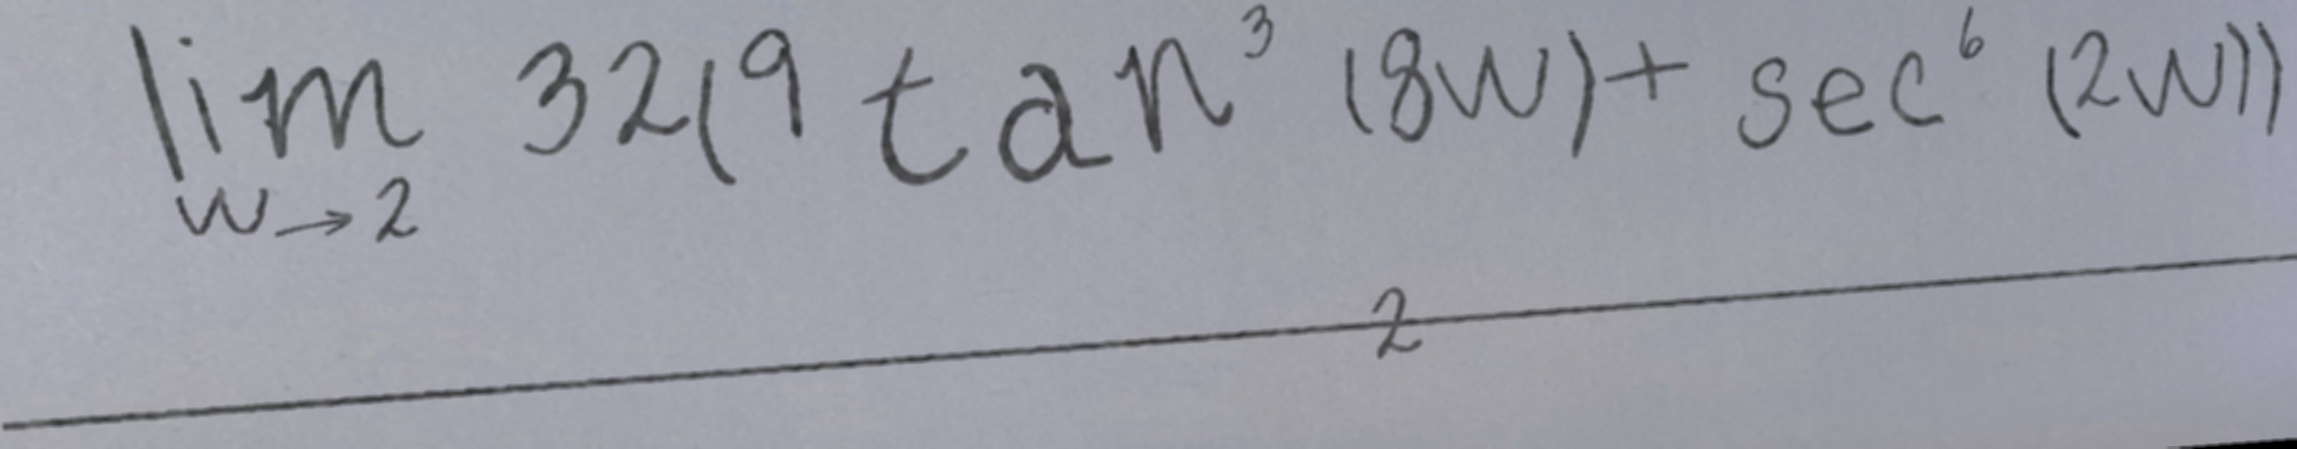 lim 32(9 tan³ (8w) + sec⁶ (2w))
w→2
2